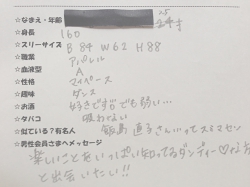 ☆なまえ・年齢
☆身長 160
☆スリーサイズ B 84 W 62 H 88
☆職業 アパレル
☆血液型 A
☆性格 マイペース
☆趣味 ダンス
☆お酒 好きですがでも弱い…
☆タバコ 吸わない
☆似ている?有名人 飯島直子さん…ってスミマセン
☆男性会員さまへメッセージ
楽しいことをいっぱい知ってるダンディー♡な方
と出会いたい!!